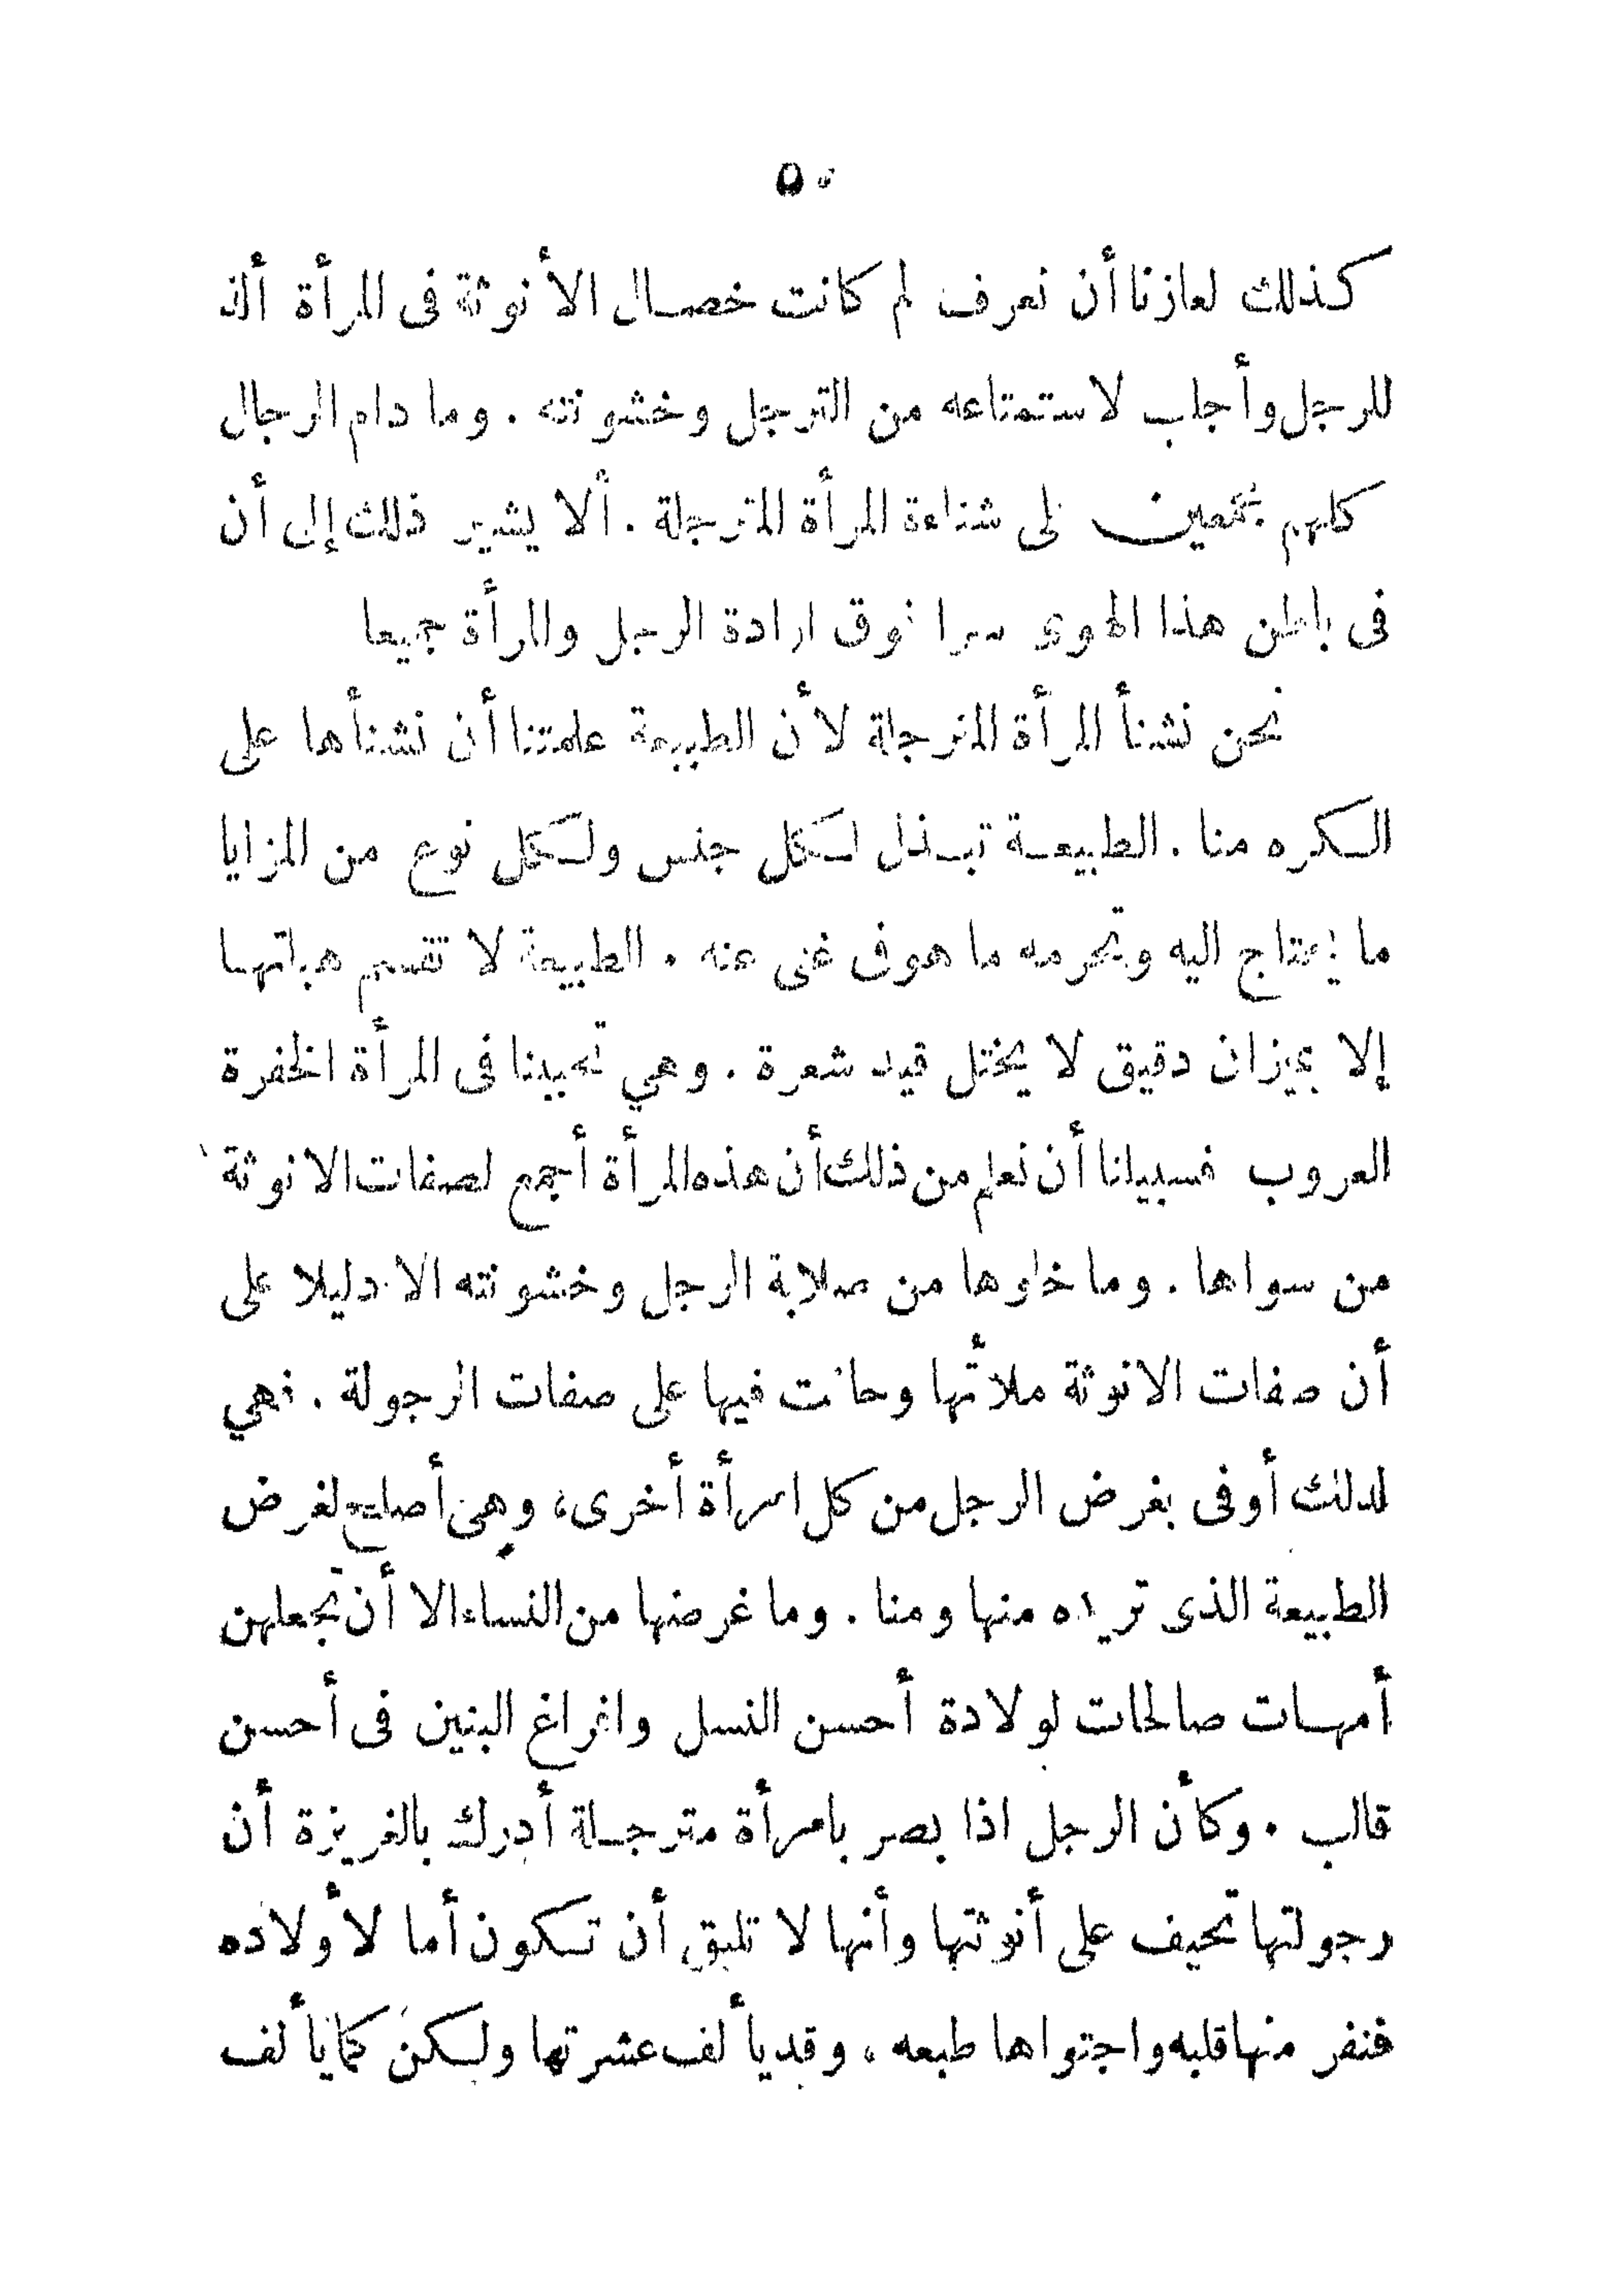 ٥٠
كذلك لعازنا أن نعرف لم كانت خصال الأنوثة فى المرأة ألذ
للرجل وأجلب لاستمتاعه من الترجل وخشونته . وما دام الرجال
كلهم مجمعين على شناءة المرأة المترجلة . ألا يشير ذلك إلى أن
فى باطن هذا الهوى سرا فوق ارادة الرجل والمرأة جميعا
نحن نشنأ المرأة المترجلة لأن الطبيعة علمتنا أن نشنأها على
الكره منا . الطبيعة تبذل لكل جنس ولكل نوع من المزايا
ما يحتاج اليه وتحرمه ما هو فى غنى عنه . الطبيعة لا تقسم هباتها
إلا بميزان دقيق لا يختل قيد شعرة . وهي تحببنا فى المرأة الخفرة
العروب فسبيلنا أن نعلم من ذلك أن هذه المرأة أجمع لصفات الانوثة
من سواها . وما خلوها من صلابة الرجل وخشونته الا دليلا على
أن صفات الانوثة ملأتها وحافت فيها على صفات الرجولة . فهي
لذلك أوفى بغرض الرجل من كل امرأة أخرى، وهى أصلح لغرض
الطبيعة الذى تريده منها ومنا . وما غرضها من النساء الا أن تجعلهن
أمهات صالحات لولادة أحسن النسل وافراغ البنين فى أحسن
قالب . وكأن الرجل اذا بصر بامرأة مترجلة أدرك بالغريزة أن
رجولتها تحيف على أنوثتها وأنها لا تليق أن تكون أما لأولاده
فنفر منها قلبه واجتواها طبعه ، وقد يألف عشرتها ولكن كما يألف